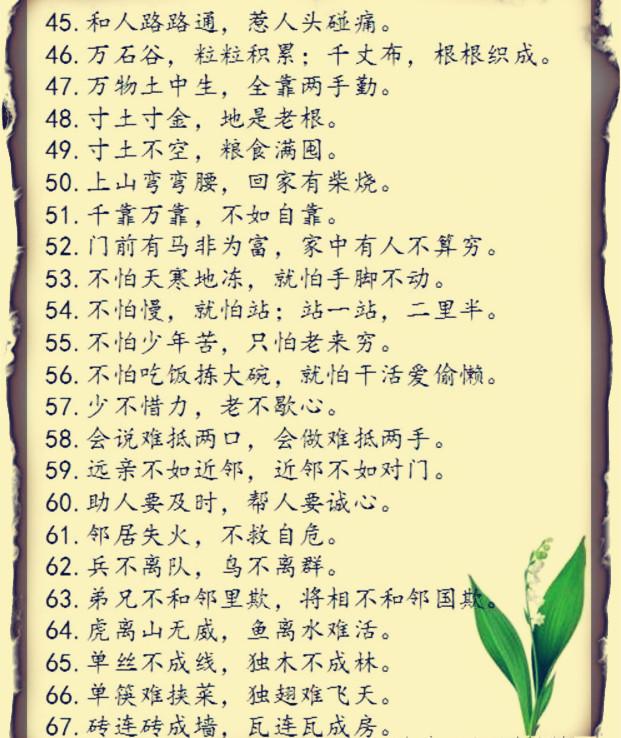 45.和人路路通，惹人头碰痛。
46.万石谷，粒粒积累；千丈布，根根织成。
47.万物土中生，全靠两手勤。
48.寸土寸金，地是老根。
49.寸土不空，粮食满囤。
50.上山弯弯腰，回家有柴烧。
51.千靠万靠，不如自靠。
52.门前有马非为富，家中有人不算穷。
53.不怕天寒地冻，就怕手脚不动。
54.不怕慢，就怕站；站一站，二里半。
55.不怕少年苦，只怕老来穷。
56.不怕吃饭拣大碗，就怕干活爱偷懒。
57.少不惜力，老不歇心。
58.会说难抵两口，会做难抵两手。
59.远亲不如近邻，近邻不如对门。
60.助人要及时，帮人要诚心。
61.邻居失火，不救自危。
62.兵不离队，鸟不离群。
63.弟兄不和邻里欺，将相不和邻国欺。
64.虎离山无威，鱼离水难活。
65.单丝不成线，独木不成林。
66.单筷难挟菜，独翅难飞天。
67.砖连砖成墙，瓦连瓦成房。